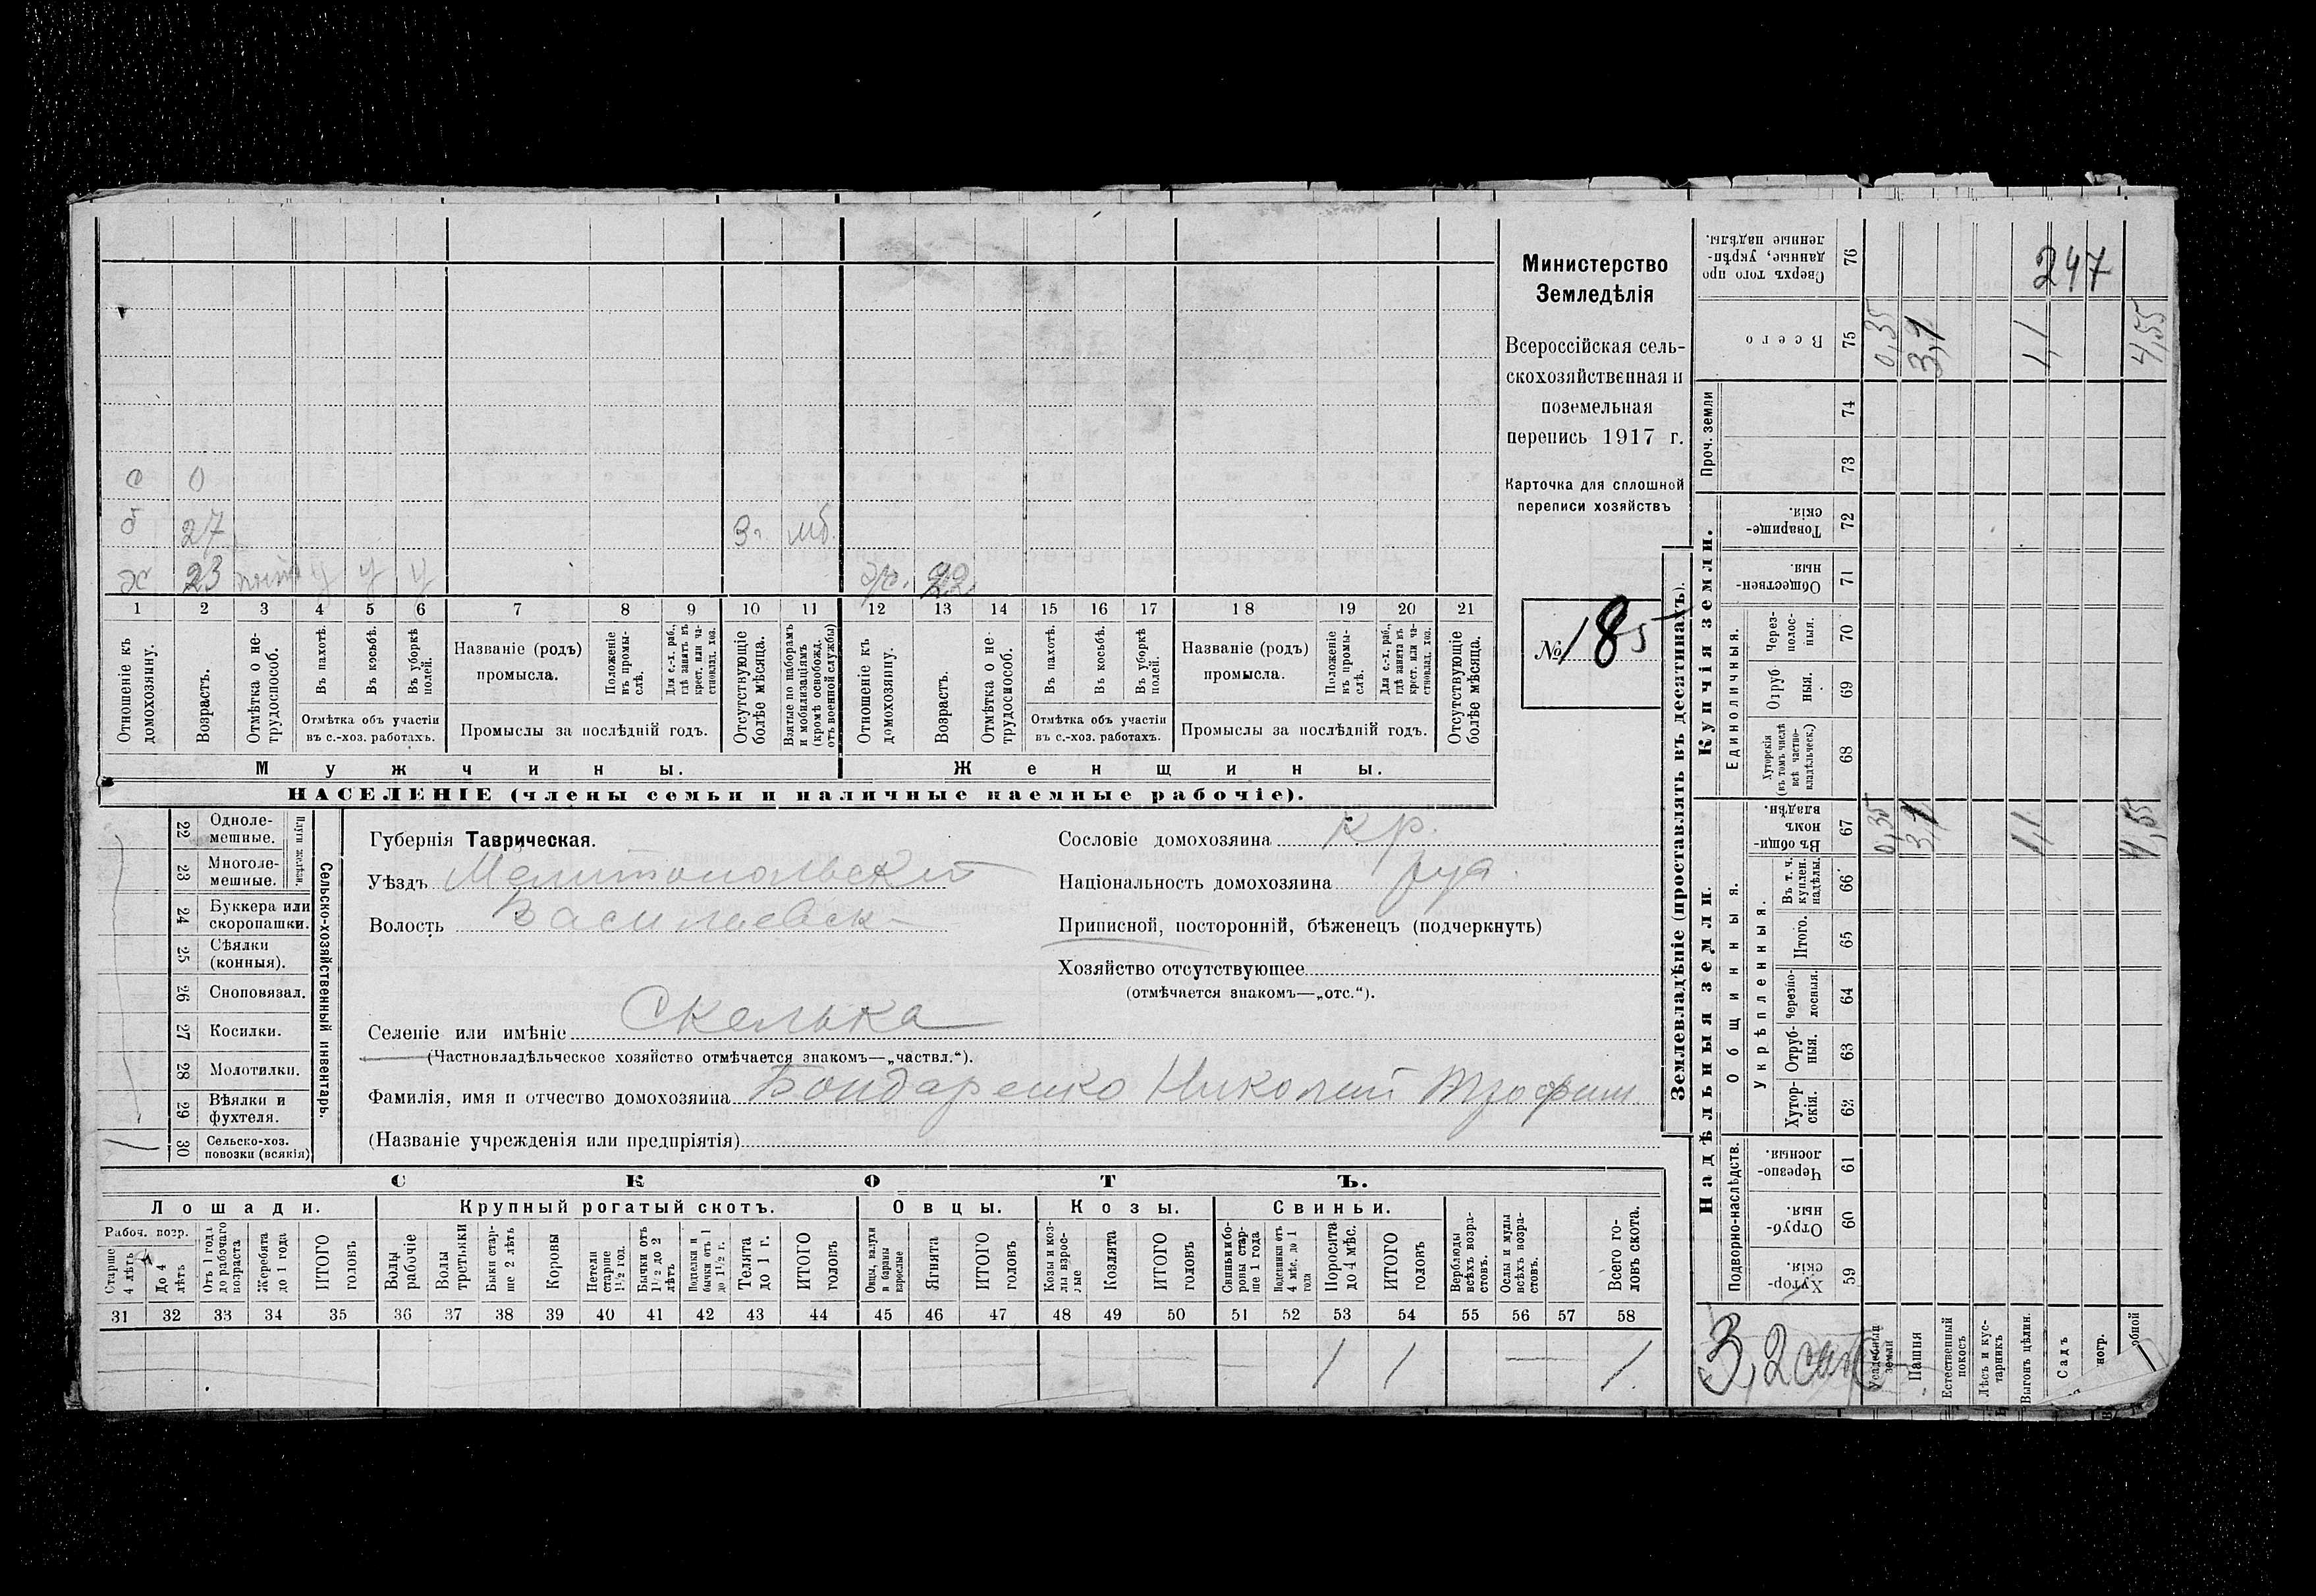 с 0
б 27 3 г. мб.
х 23 у у у ж. 22
1 2 3 4 5 6 7 8 9 10 11 12 13 14 15 16 17 18 19 20 21
Отношеніе къ домохозяину.
Возрастъ.
Отмѣтка о нетрудоспособ.
Въ пахотѣ.
Въ косьбѣ.
Въ уборкѣ полей.
Отмѣтка объ участіи
въ с.-хоз. работахъ.
Названіе (родъ)
промысла.
Положеніе въ промыслѣ.
Для с.-х. раб., гдѣ занятъ въ крест. или частновлад. хоз.
Промыслы за послѣдній годъ.
Отсутствующіе болѣе мѣсяца.
Взятые по наборамъ и мобилизаціямъ (кромѣ освобожд. отъ военной службы)
Отношеніе къ домохозяину.
Возрастъ.
Отмѣтка о нетрудоспособ.
Въ пахотѣ.
Въ косьбѣ.
Въ уборкѣ полей.
Отмѣтка объ участіи
въ с.-хоз. работахъ.
Названіе (родъ)
промысла.
Положеніе въ промыслѣ.
Для с.-х. раб., гдѣ занята въ крест. или частновлад. хоз.
Промыслы за послѣдній годъ.
Отсутствующіе болѣе мѣсяца.
Мужчины. Женщины.
НАСЕЛЕНІЕ (члены семьи и наличные наемные рабочіе).
Министерство
Земледѣлія
Всероссійская сель-
скохозяйственная и
поземельная
перепись 1917 г.
Карточка для сплошной
переписи хозяйствъ
№ 185
Сельско-хозяйственный инвентарь.
Плуги желѣзн.
22 Однолемешные.
23 Многолемешные.
24 Буккера или скоропашки.
25 Сѣялки (конныя).
26 Сноповязал.
27 Косилки.
28 Молотилки.
29 Вѣялки и фухтеля.
30 Сельско-хоз. повозки (всякія)
Губернія Таврическая.
Уѣздъ Мелитопольскій
Волость Васильевск
Селеніе или имѣніе Скелька
(Частновладѣльческое хозяйство отмѣчается знакомъ—„частвл.“).
Фамилія, имя и отчество домохозяина Бондаренко Николай Трофим
(Названіе учрежденія или предпріятія)
Сословіе домохозяина кр.
Національность домохозяина рус.
Приписной, посторонній, бѣженецъ (подчеркнуть)
Хозяйство отсутствующее
(отмѣчается знакомъ—„отс.“).
СКОТЪ.
Лошади. Крупный рогатый скотъ. Овцы. Козы. Свиньи.
Рабоч. возр.
Старше 4 лѣтъ
До 4 лѣтъ
Отъ 1 года до рабочаго возраста
Жеребята до 1 года
ИТОГО головъ
Волы рабочіе
Волы третьяки
Быки старше 2 лѣтъ
Коровы
Нетели старше 1½ год.
Бычки отъ 1½ до 2 лѣтъ
Подтелки и бычки отъ 1 до 1½ г.
Телята до 1 г.
ИТОГО головъ
Овцы, валухи и бараны взрослые
Ягнята
ИТОГО головъ
Козы и козлы взрослые
Козлята
ИТОГО головъ
Свиньи и боровы старше 1 года
Подсвинки отъ 4 мѣс. до 1 года
Поросята до 4 мѣс.
ИТОГО головъ
Верблюды всѣхъ возрастовъ.
Ослы и мулы всѣхъ возрастовъ.
Всего головъ скота.
31 32 33 34 35 36 37 38 39 40 41 42 43 44 45 46 47 48 49 50 51 52 53 54 55 56 57 58
1 1 1
Землевладѣніе (проставлять въ десятинахъ).
Купчія земли.
Надѣльныя земли.
Сверхъ того проданные, укрѣпленные надѣлы. 76 247
Всего 75 0,35 3,1 1,1 4,55
Проч. земли 74 73
Товарищескія. 72
Общественныя. 71
Единоличныя.
Черезполосныя. 70
Отрубныя. 69
Хуторскія (въ томъ числѣ всѣ частновладѣльческ.) 68
Общинныя.
Въ общинномъ владѣн. 67 0,35 3,1 1,1 4,55
Укрѣпленныя.
Въ т. ч. куплен. надѣлы. 66
Итого. 65
Черезполосныя. 64
Отрубныя. 63
Хуторскія. 62
Подворно-наслѣдств.
Черезполосныя. 61
Отрубныя. 60
Хуторскія. 59
3,2 саж
Усадебныя земли
Пашня
Естественный покосъ
Лѣсъ и кустарникъ
Выгонъ цѣлин.
Садъ
ногр.
обной